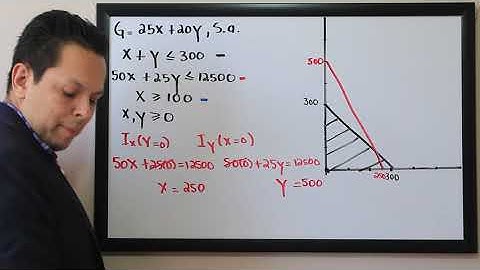 G= 25x+20y, s.a.
x + y ≤ 300 –
50x + 25y ≤ 12500 –
x ≥ 100 –
x,y ≥ 0
Ix(y=0) Iy(x=0)
50x + 25(0) = 12500 50(0) + 25y = 12500
x = 250 y = 500
500
300
250 300